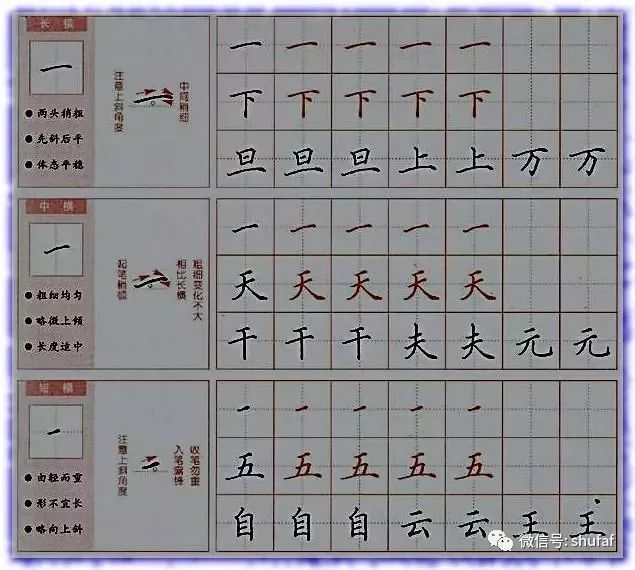 长横
一
两头稍粗
先斜后平
体态平稳
注意上斜角度
中间稍细
一 一 一 一 一
下 下 下 下 下
旦 旦 旦 上 上 万 万
中横
一
粗细均匀
略微上倾
长度适中
起笔稍顿
粗细变化不大
相比长横
一 一 一 一 一
天 天 天 天 天
干 干 干 夫 夫 元 元
短横
一
由轻而重
形不宜长
略向上斜
注意上斜角度
收笔勿重
入笔露锋
一 一 一 一 一
五 五 五 五 五
自 自 自 云 云 王 主
微信号: shufaf